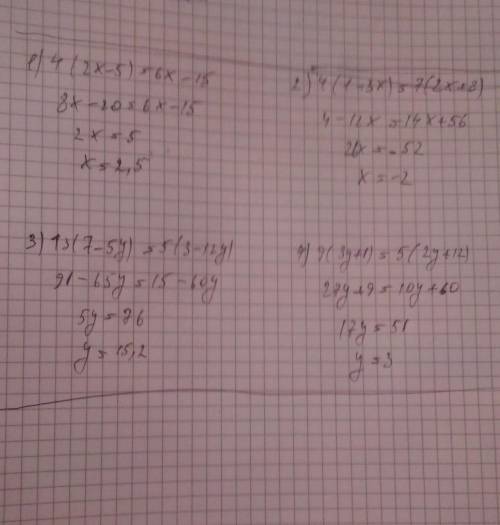 1) 4 (2x-5) = 6x - 15
8x - 20 = 6x - 15
2x = 5
x = 2,5
2) 4 (1-3x) = 7(2x+8)
4 - 12x = 14x + 56
26x = -52
x = -2
3) 13(7-5y) = 5(3-12y)
91 - 65y = 15 - 60y
5y = 76
y = 15,2
4) 9(3y+1) = 5(2y+12)
27y + 9 = 10y + 60
17y = 51
y = 3